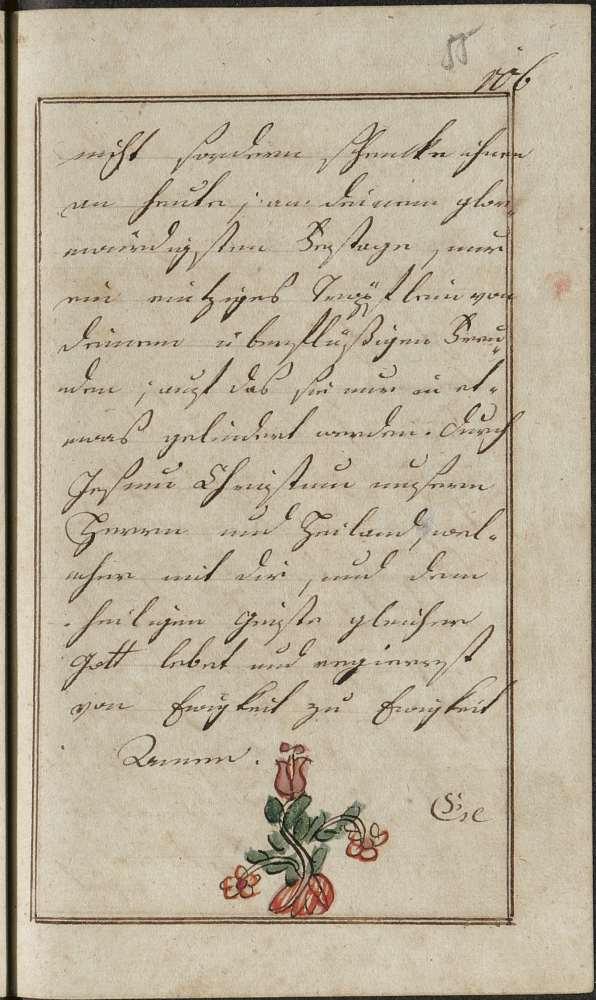 55
106
nicht sondern schencke ihnen
an heute, an deinem glor-
würdigsten Festage, nur
ein eintziges Tröpflein von
deinem überflüßigen Freu-
den, auf das sie nur in et-
was gelindert werden. Durch
Jesum Christum unsern
Herrn und Heiland, wel-
cher mit dir, und dem
heiligen Geiste gleicher
Gott lebet und regierest
von Ewigkeit zu Ewigkeit
Amen.